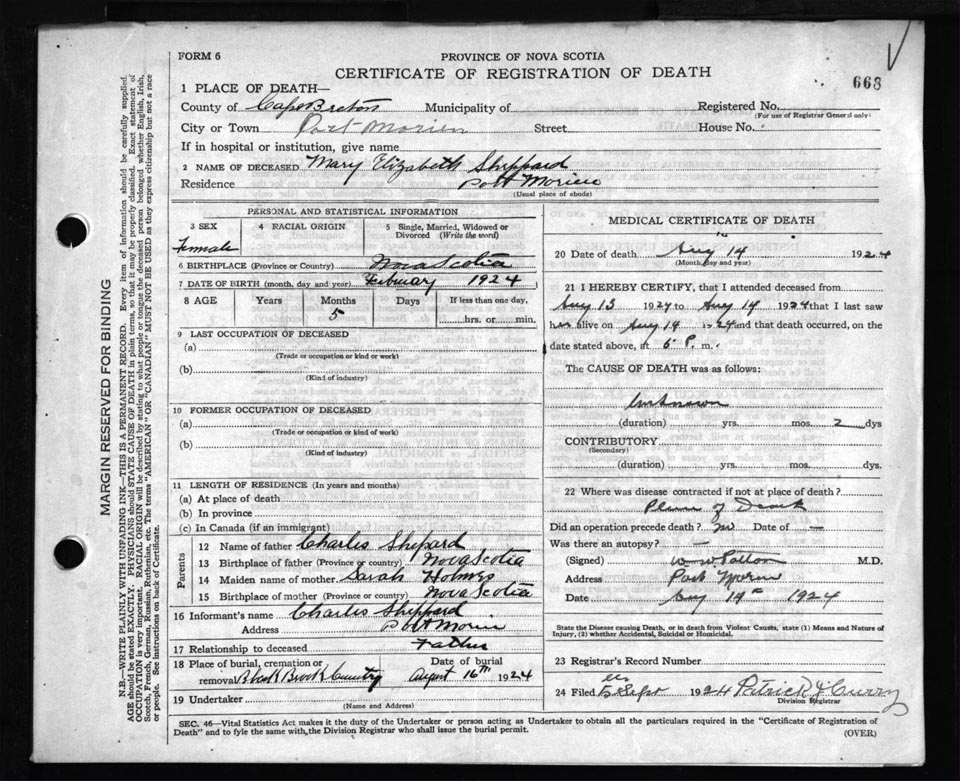 FORM 6
PROVINCE OF NOVA SCOTIA
CERTIFICATE OF REGISTRATION OF DEATH
668
1 PLACE OF DEATH—
County of Cape Breton Municipality of Registered No.
(For use of Registrar General only)
City or Town Port Morien Street House No.
If in hospital or institution, give name
2 NAME OF DECEASED Mary Elizabeth Sheppard
Residence Port Morien
(Usual place of abode)
PERSONAL AND STATISTICAL INFORMATION
3 SEX 4 RACIAL ORIGIN 5 Single, Married, Widowed or Divorced (Write the word)
Female
6 BIRTHPLACE (Province or Country) Nova Scotia
7 DATE OF BIRTH (month, day and year) February 1924
8 AGE Years Months Days If less than one day,
5 hrs. or min.
9 LAST OCCUPATION OF DECEASED
(a)
(Trade or occupation or kind or work)
(b)
(Kind of industry)
10 FORMER OCCUPATION OF DECEASED
(a)
(Trade or occupation or kind of work)
(b)
(Kind of industry)
11 LENGTH OF RESIDENCE (In years and months)
(a) At place of death
(b) In province
(c) In Canada (if an immigrant)
Parents
12 Name of father Charles Sheppard
13 Birthplace of father (Province or country) Nova Scotia
14 Maiden name of mother Sarah Holmes
15 Birthplace of mother (Province or country) Nova Scotia
16 Informant's name Charles Sheppard
Address Port Morien
17 Relationship to deceased Father
18 Place of burial, cremation or removal Black Brook Cemetry Date of burial August 16th 1924
19 Undertaker
(Name and Address)
MEDICAL CERTIFICATE OF DEATH
20 Date of death Aug 14 1924
(Month, day and year)
21 I HEREBY CERTIFY, that I attended deceased from
Aug 13 1924 to Aug 14 1924 that I last saw
her alive on Aug 14 1924 and that death occurred, on the
date stated above, at 6 P. m.
The CAUSE OF DEATH was as follows:
Unknown
(duration) yrs. mos. 2 dys
CONTRIBUTORY
(Secondary)
(duration) yrs. mos. dys.
22 Where was disease contracted if not at place of death?
Place of Death
Did an operation precede death? No Date of —
Was there an autopsy? —
(Signed) W. W. Patton M.D.
Address Port Morien
Date Aug 14th 1924
State the Disease causing Death, or in death from Violent Causes, state (1) Means and Nature of
Injury, (2) whether Accidental, Suicidal or Homicidal.
23 Registrar's Record Number
24 Filed 5 Sept 1924 Patrick J Curry
Division Registrar
SEC. 46—Vital Statistics Act makes it the duty of the Undertaker or person acting as Undertaker to obtain all the particulars required in the "Certificate of Registration of
Death" and to fyle the same with, the Division Registrar who shall issue the burial permit.
(OVER)
MARGIN RESERVED FOR BINDING
N.B.—WRITE PLAINLY WITH UNFADING INK—THIS IS A PERMANENT RECORD. Every item of information should be carefully supplied.
AGE should be stated EXACTLY. PHYSICIANS should STATE CAUSE OF DEATH in plain terms, so that it may be properly classified. Exact statement of
OCCUPATION is very important. RACIAL ORIGIN will be described by stating to what people or tongue the deceased person belonged whether English, Irish,
Scotch, French, German, Russian, Ruthenian, etc. The terms "AMERICAN" OR "CANADIAN" MUST NOT BE USED as they express citizenship but not a race
or people. See instructions on back of Certificate.